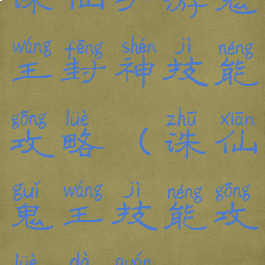 诛仙手游鬼
wáng fēng shén jì néng
王封神技能
gōng lüè zhū xiān
攻略（诛仙
guǐ wáng jì néng gōng
鬼王技能攻
lüè dà quán